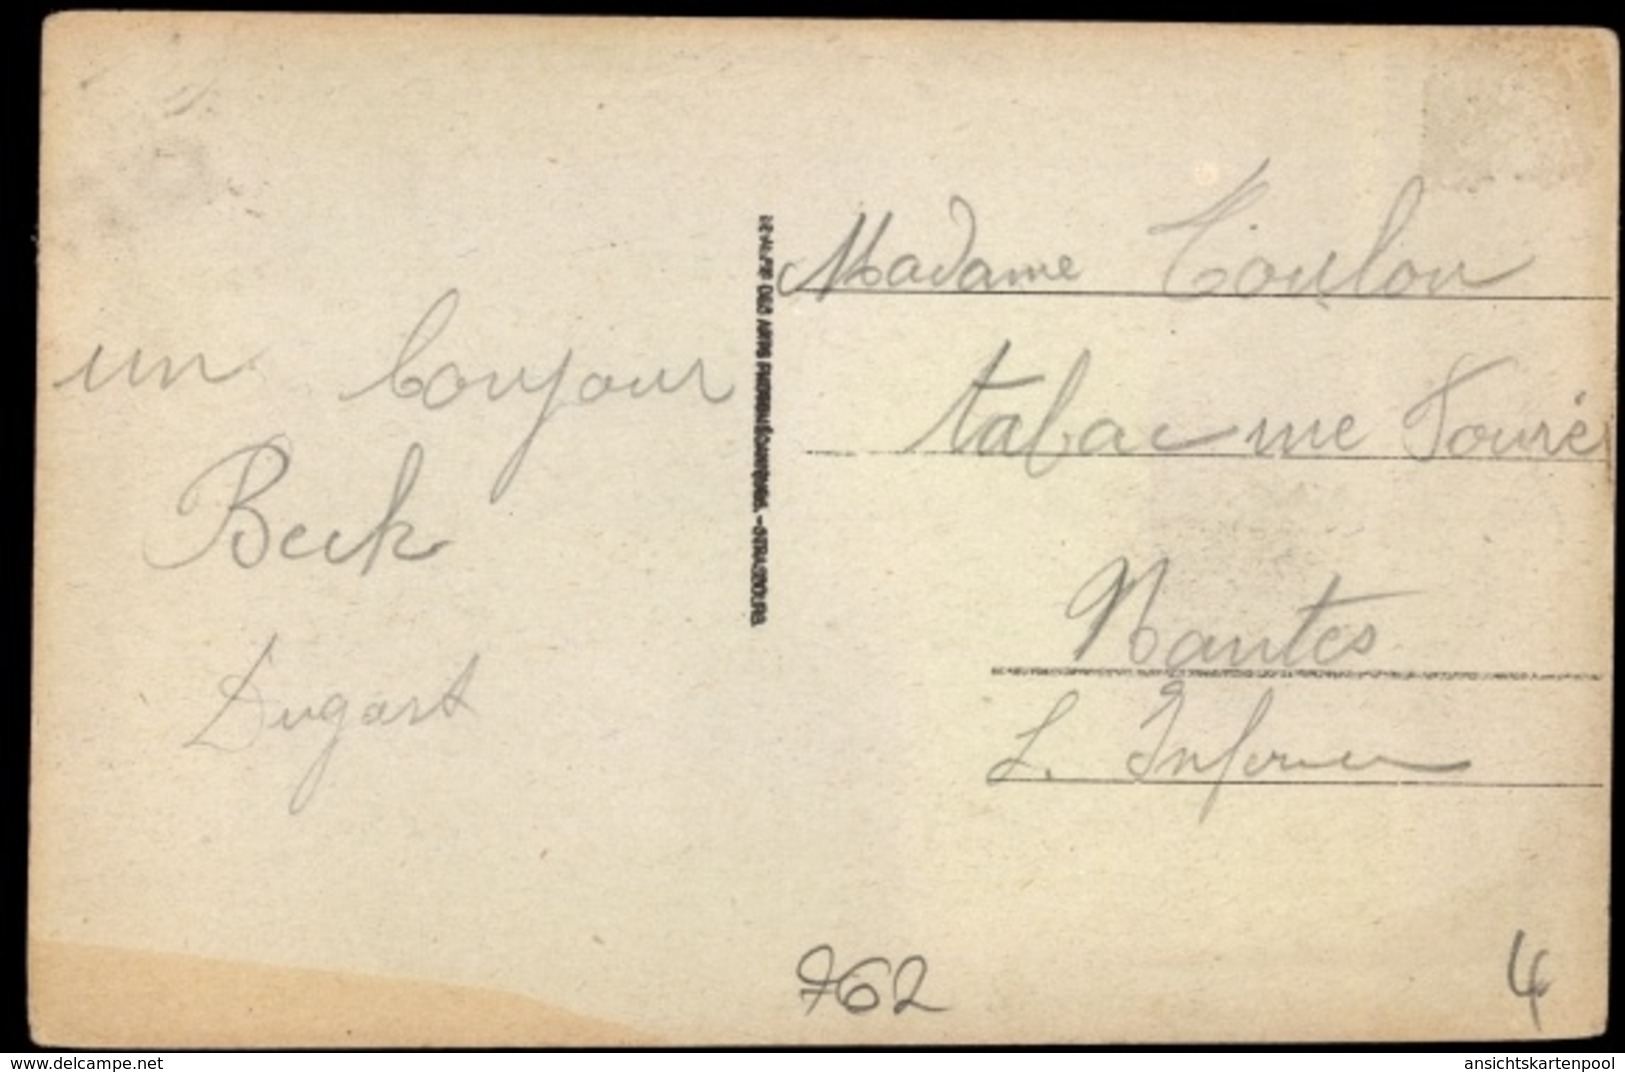 un bonjour
Beck
Dugart
Madame Toulon
tabac rue Fouré
Nantes
L. Inferieure
762
4
www.delcampe.net
ansichtskartenpool